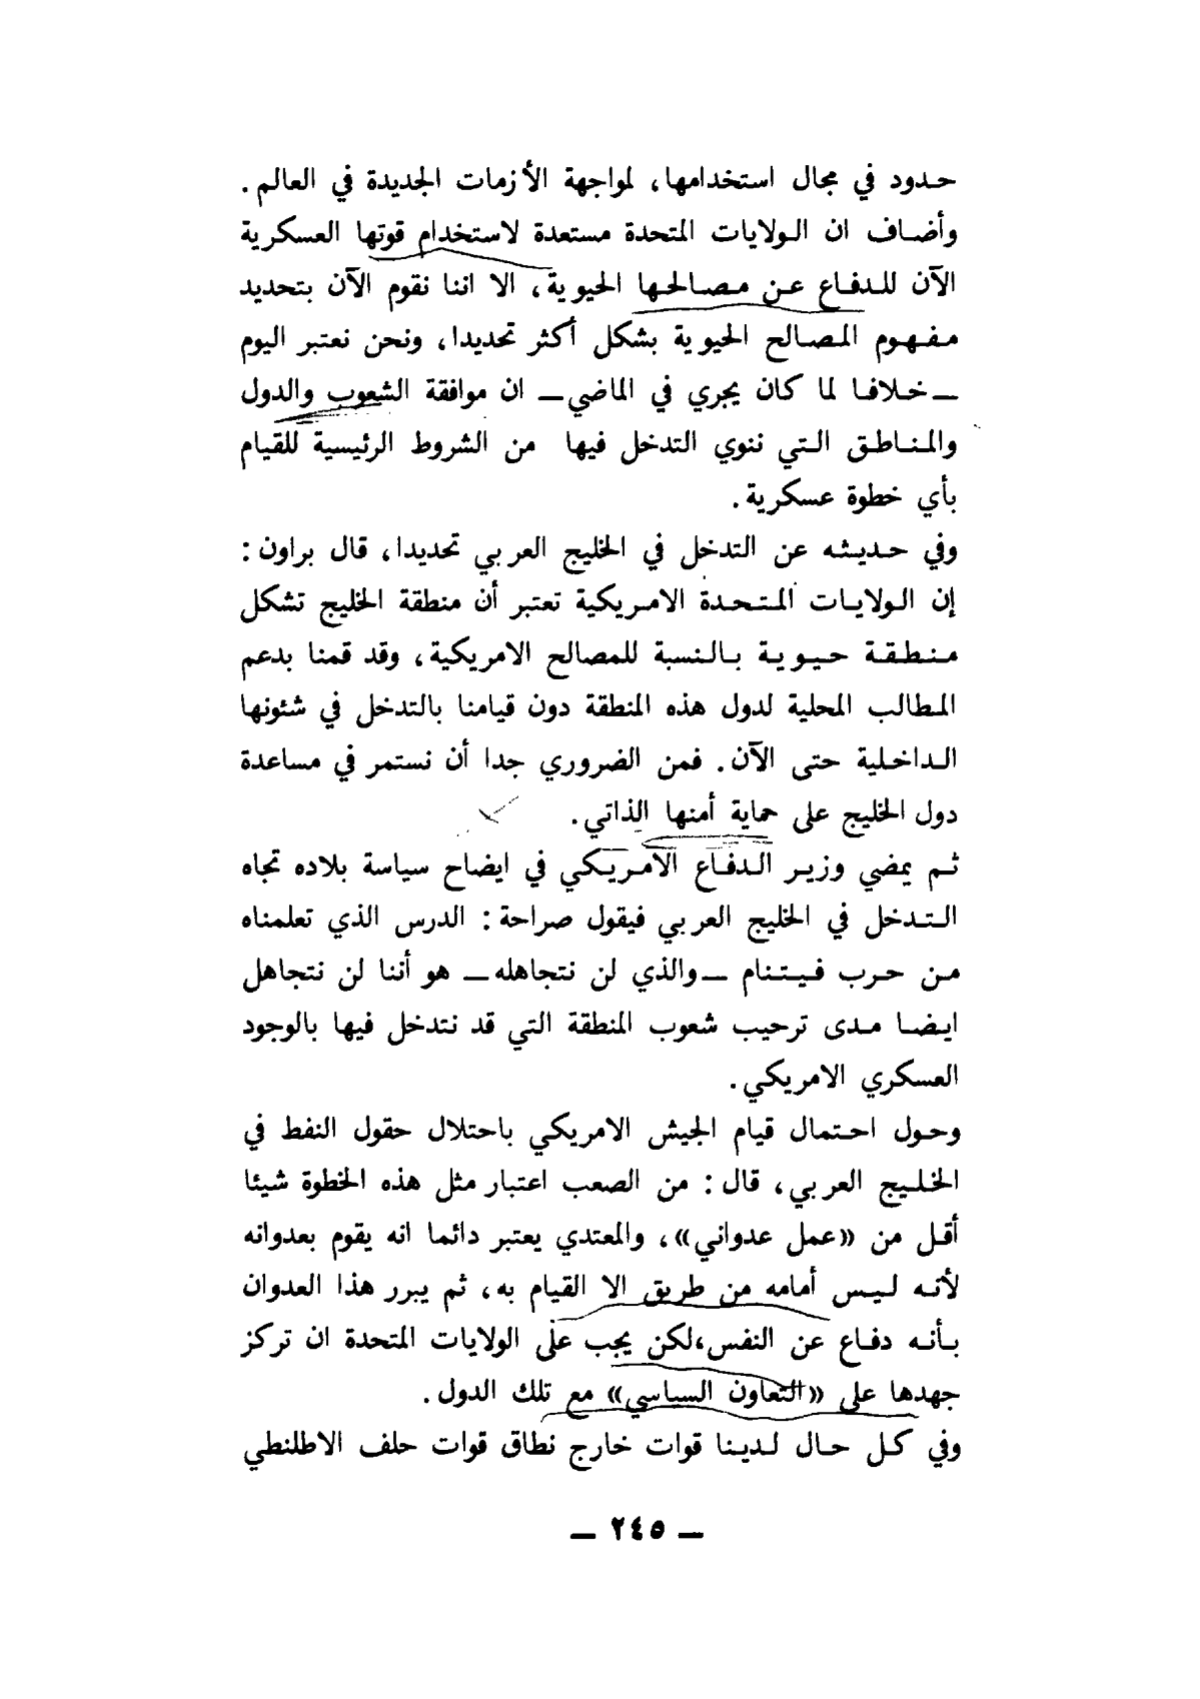 حدود في مجال استخدامها، لمواجهة الأزمات الجديدة في العالم.
وأضاف ان الولايات المتحدة مستعدة لاستخدام قوتها العسكرية
الآن للدفاع عن مصالحها الحيوية، الا اننا نقوم الآن بتحديد
مفهوم المصالح الحيوية بشكل أكثر تحديدا، ونحن نعتبر اليوم
ـ خلافا لما كان يجري في الماضي ـ ان موافقة الشعوب والدول
والمناطق التي ننوي التدخل فيها من الشروط الرئيسية للقيام
بأي خطوة عسكرية.
وفي حديثه عن التدخل في الخليج العربي تحديدا، قال براون:
إن الولايات المتحدة الامريكية تعتبر أن منطقة الخليج تشكل
منطقة حيوية بالنسبة للمصالح الامريكية، وقد قمنا بدعم
المطالب المحلية لدول هذه المنطقة دون قيامنا بالتدخل في شئونها
الداخلية حتى الآن. فمن الضروري جدا أن نستمر في مساعدة
دول الخليج على حماية أمنها الذاتي.
ثم يمضي وزير الدفاع الامريكي في ايضاح سياسة بلاده تجاه
التدخل في الخليج العربي فيقول صراحة: الدرس الذي تعلمناه
من حرب فيتنام ـ والذي لن نتجاهله ـ هو أننا لن نتجاهل
ايضا مدى ترحيب شعوب المنطقة التي قد نتدخل فيها بالوجود
العسكري الامريكي.
وحول احتمال قيام الجيش الامريكي باحتلال حقول النفط في
الخليج العربي، قال: من الصعب اعتبار مثل هذه الخطوة شيئا
أقل من «عمل عدواني»، والمعتدي يعتبر دائما انه يقوم بعدوانه
لأنه ليس أمامه من طريق الا القيام به، ثم يبرر هذا العدوان
بأنه دفاع عن النفس، لكن يجب على الولايات المتحدة ان تركز
جهدها على «التعاون السياسي» مع تلك الدول.
وفي كل حال لدينا قوات خارج نطاق قوات حلف الاطلنطي
ـ ٢٤٥ ـ